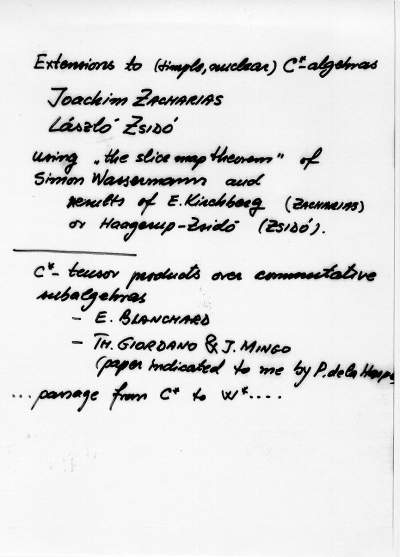 Extensions to (simple, nuclear) C*-algebras
Joachim ZACHARIAS
László ZSIDÓ
using „the slice map theorem" of
Simon Wassermann and
results of E. Kirchberg (ZACHARIAS)
or Haagerup-Zsidó (ZSIDÓ).
C*- tensor products over commutative
subalgebras
- E. BLANCHARD
- TH. GIORDANO & J. MINGO
(paper indicated to me by P. de la Harpe
... passage from C* to W* ....